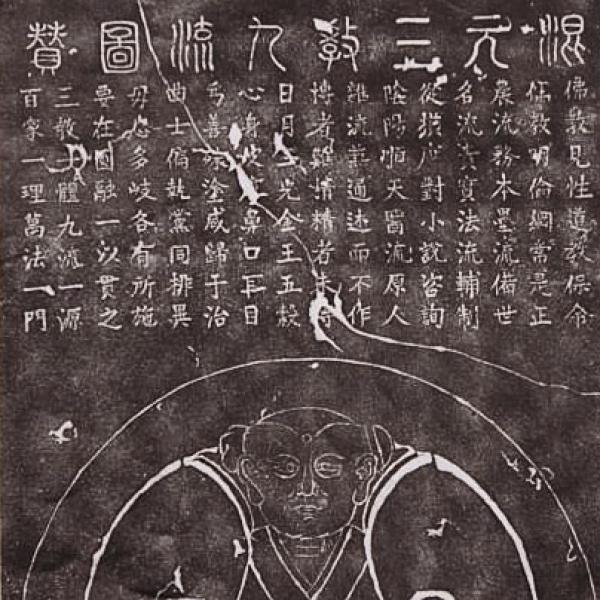 混元三教九流圖贊
佛教見性道教保命
儒教明倫綱常是正
農流務本墨流備世
名流責實法流輔制
從橫應對小說咨詢
陰陽順天醫流原人
雜流兼通述而不作
博者難精精者未
日月三光金玉五穀
心身皮鼻口耳目
為善殊塗咸歸于治
曲士偏執黨同排異
毋患多岐各有所施
要在圓融一以貫之
三教一體九流一源
百家一理萬法一門